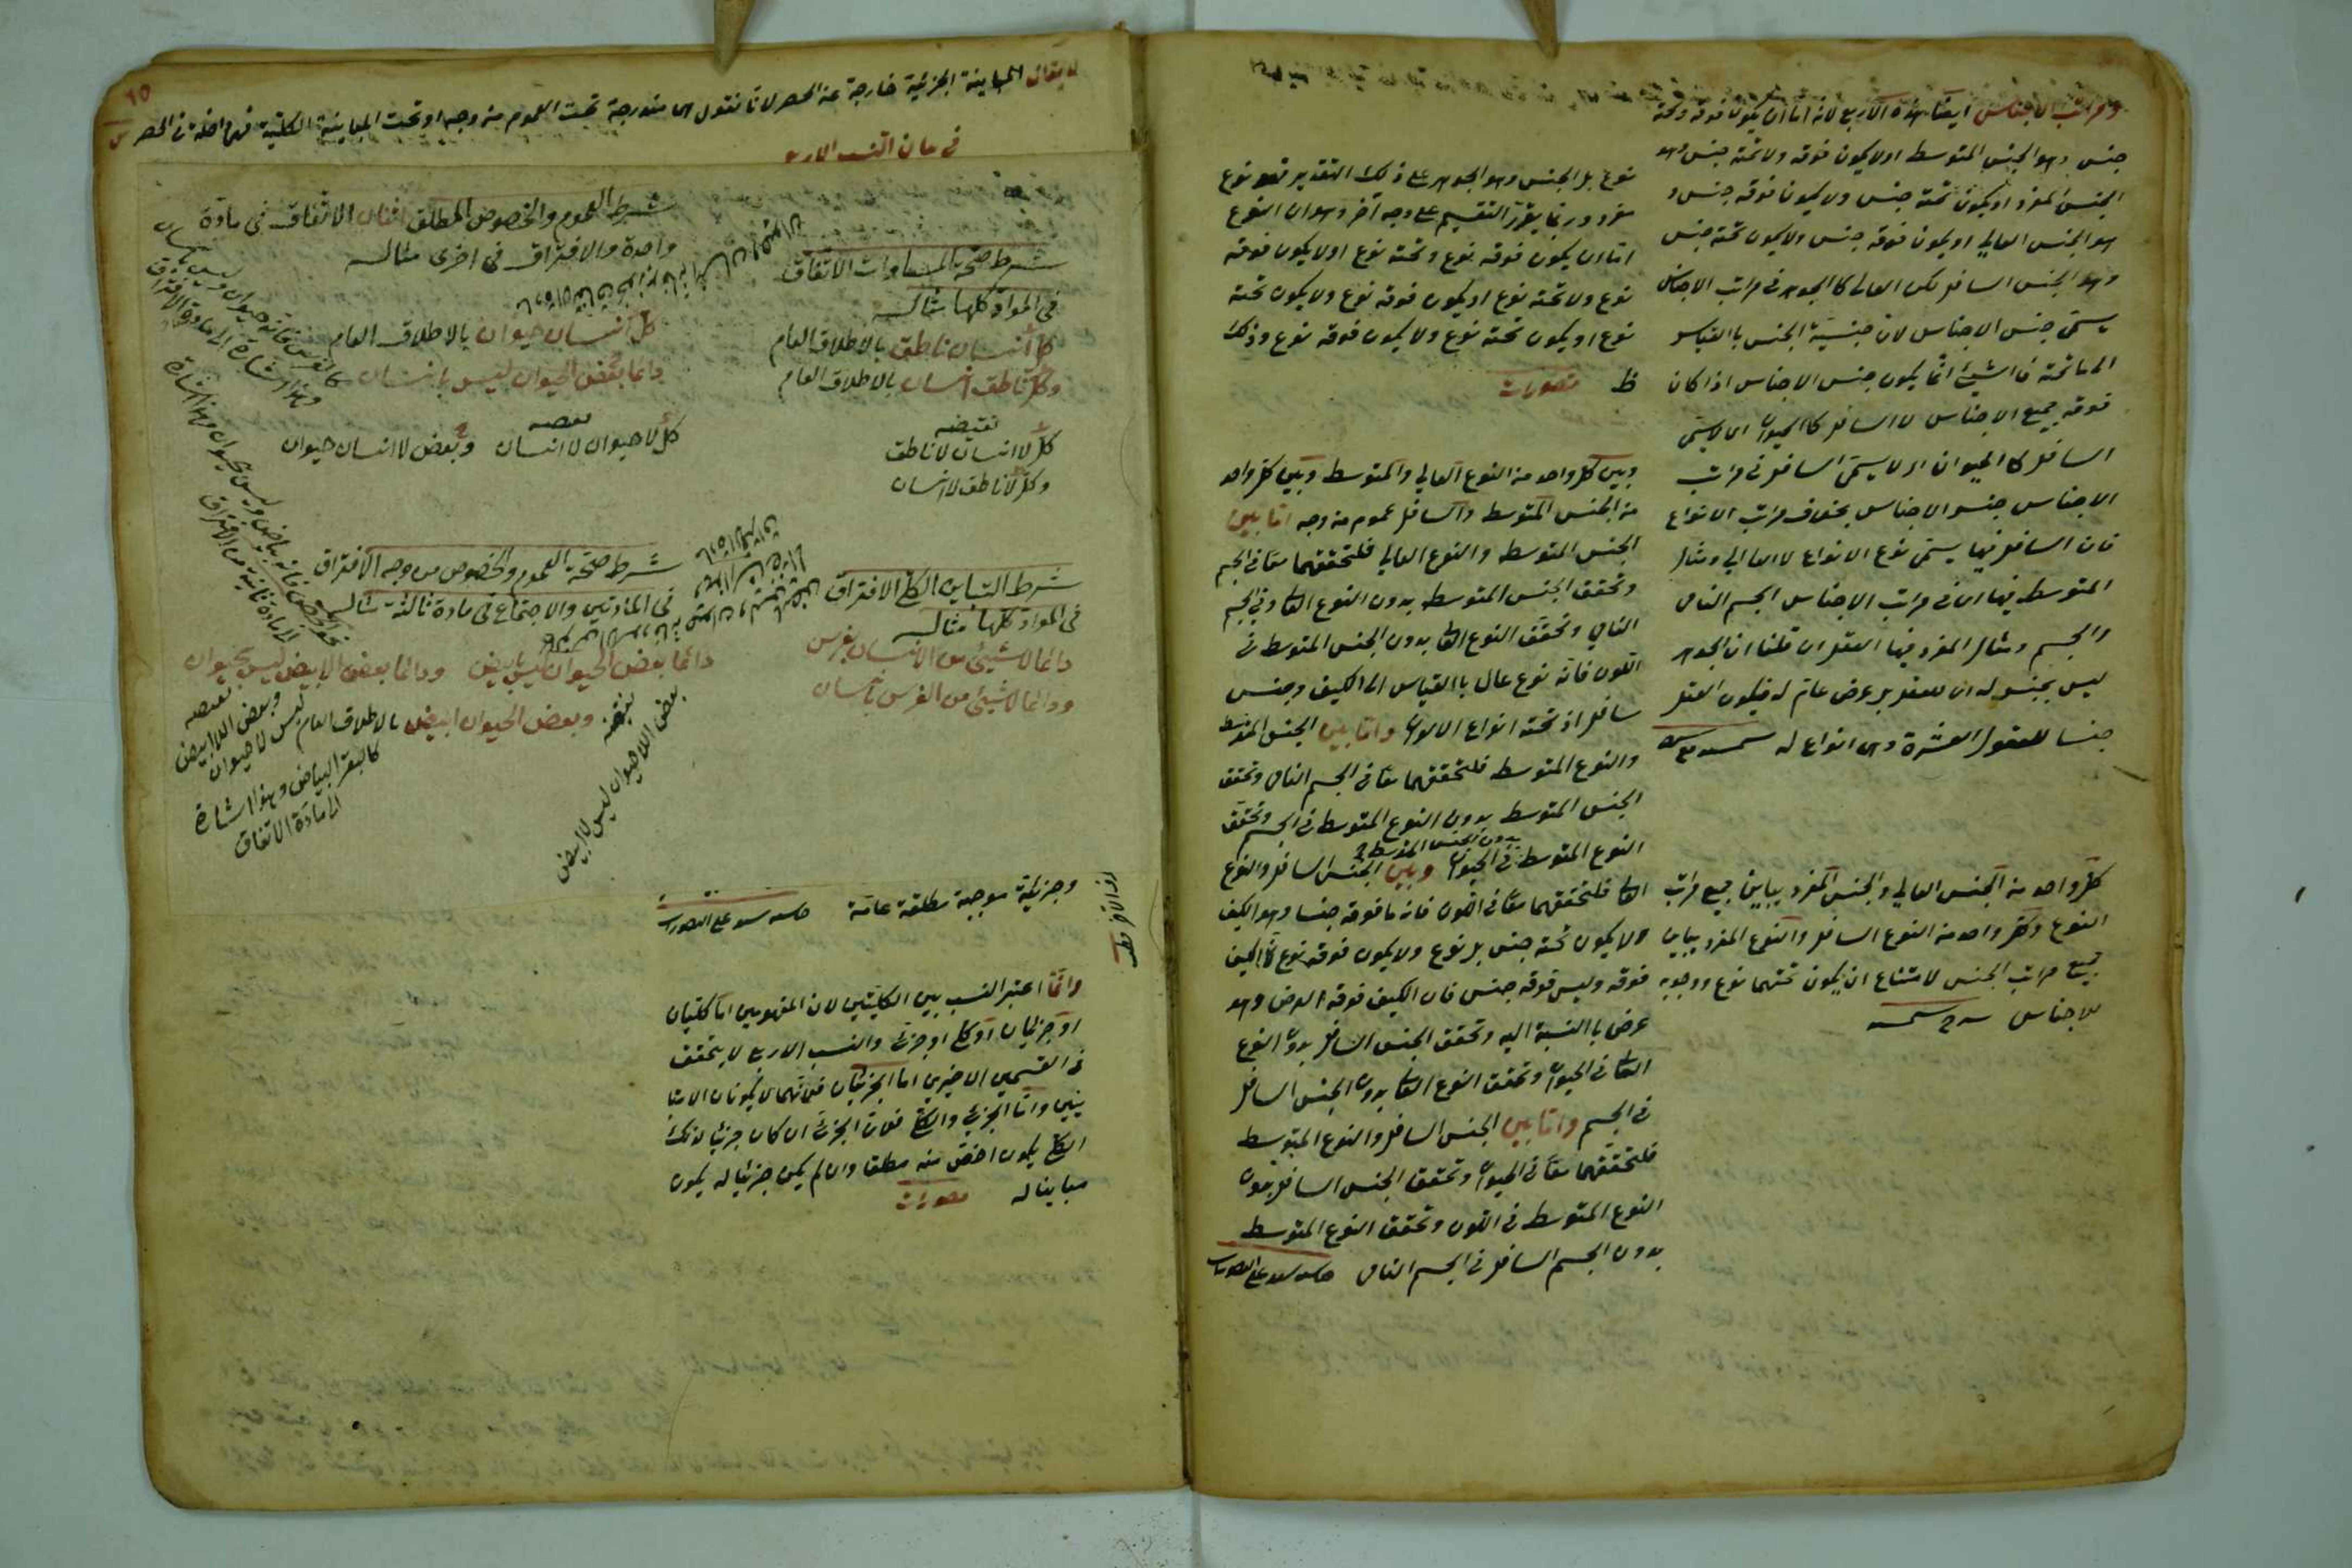 ومراتب الاجناس ايضا هذه الاربع لانه اما ان يكون فوقه وتحته
جنس وهو الجنس المتوسط او لا يكون فوقه ولا تحته جنس وهو
الجنس المفرد او يكون تحته جنس ولا يكون فوقه جنس و
هو الجنس العالي او يكون فوقه جنس ولا يكون تحته جنس
وهو الجنس السافل لكن العالى كالجوهر فى مراتب الاجناس
يسمى جنس الاجناس لان جنسية الجنس بالقياس
الى ما تحته فالشيئ انما يكون جنس الاجناس اذا كان
فوقه جميع الاجناس لا السافل كالحيوان اى لا يسمى
السافل كالحيوان اى لا يسمى السافل فى مراتب
الاجناس جنس الاجناس بخلاف مراتب الانواع
فان السافل فيها يسمى نوع الانواع لا العالي ومثال
المتوسط فيها اى فى مراتب الاجناس الجسم النامى
والجسم ومثال المفرد فيها العقل ان قلنا ان الجوهر
ليس بجنس له اى للعقل بل عرض عام له فيكون العقل
جنسا للعقول العشرة وهى انواع له
كل واحد من الجنس العالي والجنس المفرد يباين جميع مراتب
النوع وكل واحد من النوع السافل والنوع المفرد يباين
جميع مراتب الجنس لامتناع ان يكون تحتهما نوع ووجوبه
للاجناس
نوع بل الجنس وهو الجوهر على ذلك التقدير فهو نوع
مفرد وربما يقرر التقسيم على وجه آخر وهو ان النوع
اما ان يكون فوقه نوع وتحته نوع او لا يكون فوقه
نوع ولا تحته نوع او يكون فوقه نوع ولا يكون تحته
نوع او يكون تحته نوع ولا يكون فوقه نوع وذلك
ظ تصورات
وبين كل واحد من النوع العالي والمتوسط وبين كل واحد
من الجنس المتوسط والسافل عموم من وجه اما بين
الجنس المتوسط والنوع العالي فلتحققهما معا فى الجسم
وتحقق الجنس المتوسط بدون النوع العا فى الجسم
النامي وتحقق النوع العا بدون الجنس المتوسط فى
اللون فانه نوع عال بالقياس الى الكيف وجنس
سافل اذ تحته انواع الالوان واما بين الجنس المتوسط
والنوع المتوسط فلتحققهما معا فى الجسم النامى وتحقق
الجنس المتوسط بدون النوع المتوسط فى الجسم وتحقق
بدون الجنس المتوسط
النوع المتوسط فى الحيوان وبين الجنس السافل والنوع
العا فلتحققهما معا فى اللون فانه ما فوقه جنسا وهو الكيف
ولا يكون تحته جنس بل نوع ولا يكون فوقه نوع الكيف
فوقه وليس فوقه جنس فان الكيف فوقه العرض وهو
عرض بالنسبة اليه وتحقق الجنس السافل بدون النوع
العا فى الحيوان وتحقق النوع العا بدون الجنس السافل
فى الجسم واما بين الجنس السافل والنوع المتوسط
فلتحققهما معا فى الحيوان وتحقق الجنس السافل بدون
النوع المتوسط فى اللون وتحقق النوع المتوسط
بدون الجسم السافل فى الجسم النامى
١٥
لا يقال المباينة الجزئية خارجة عن الحصر لانا نقول هى مندرجة تحت العموم من وجه او تحت المباينة الكلية فهى داخلة فى الحصر
فى بيان النسب الاربع
شرط صحة المساوات الاتفاق
فى المواد كلها مثاله
كل انسان ناطق بالاطلاق العام
وكل ناطق انسان بالاطلاق العام
نقيضه
كل لا انسان لا ناطق
وكل لا ناطق لا انسان
شرط العموم والخصوص المطلق اثنان الاتفاق فى مادة
واحدة والافتراق فى اخرى مثاله
كل انسان حيوان بالاطلاق العام
دائما بعض الحيوان ليس بانسان
نقيضه
كل لا حيوان لا انسان وبعض لا انسان حيوان
كالفرس فانه حيوان وليس بانسان
وهذا اشارة الى مادة الافتراق
شرط التباين الكلى الافتراق
فى المواد كلها مثاله
دائما لا شيئ من الانسان بفرس
ودائما لا شيئ من الفرس بانسان
شرط صحة العموم والخصوص من وجه الافتراق
فى المادتين والاجتماع فى مادة ثالثة مثاله
دائما بعض الحيوان ليس بابيض ودائما بعض الابيض ليس بحيوان
وبعض الحيوان ابيض بالاطلاق العام
نقيضه
بعض اللاحيوان ليس لا ابيض
نقيضه
وبعض اللاابيض
ليس لا حيوان
كالبقر البياض وهذا اشارة
الى مادة الاتفاق
وجزئية موجبة مطلقة عامة
وانما اعتبر النسب بين الكليتين لان المفهومين اما كليتان
او جزئيان او كلى وجزئى والنسب الاربع لا يتحقق
فى القسمين الاخيرين اما الجزئيان فلانهما لا يكونان الا متبا
ينين واما الجزئى والكلى فلان الجزئى ان كان جزئيا لذلك
الكلى يكون اخص منه مطلقا وان لم يكن جزئيا له يكون
مباينا له تصورات